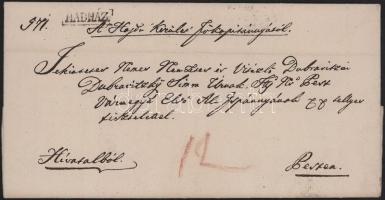 HADHÁZ
571. A Hajdu Kerületi Főkapitányától.
Tekintetes Nemes Nemzetes és Vitézlő Dubraviczai
Dubraviczky Simon Urnak, T. N. Pest
Vármegye Első Al Ispányának
tisztelettel
Hivatalból.
12
Pesten.